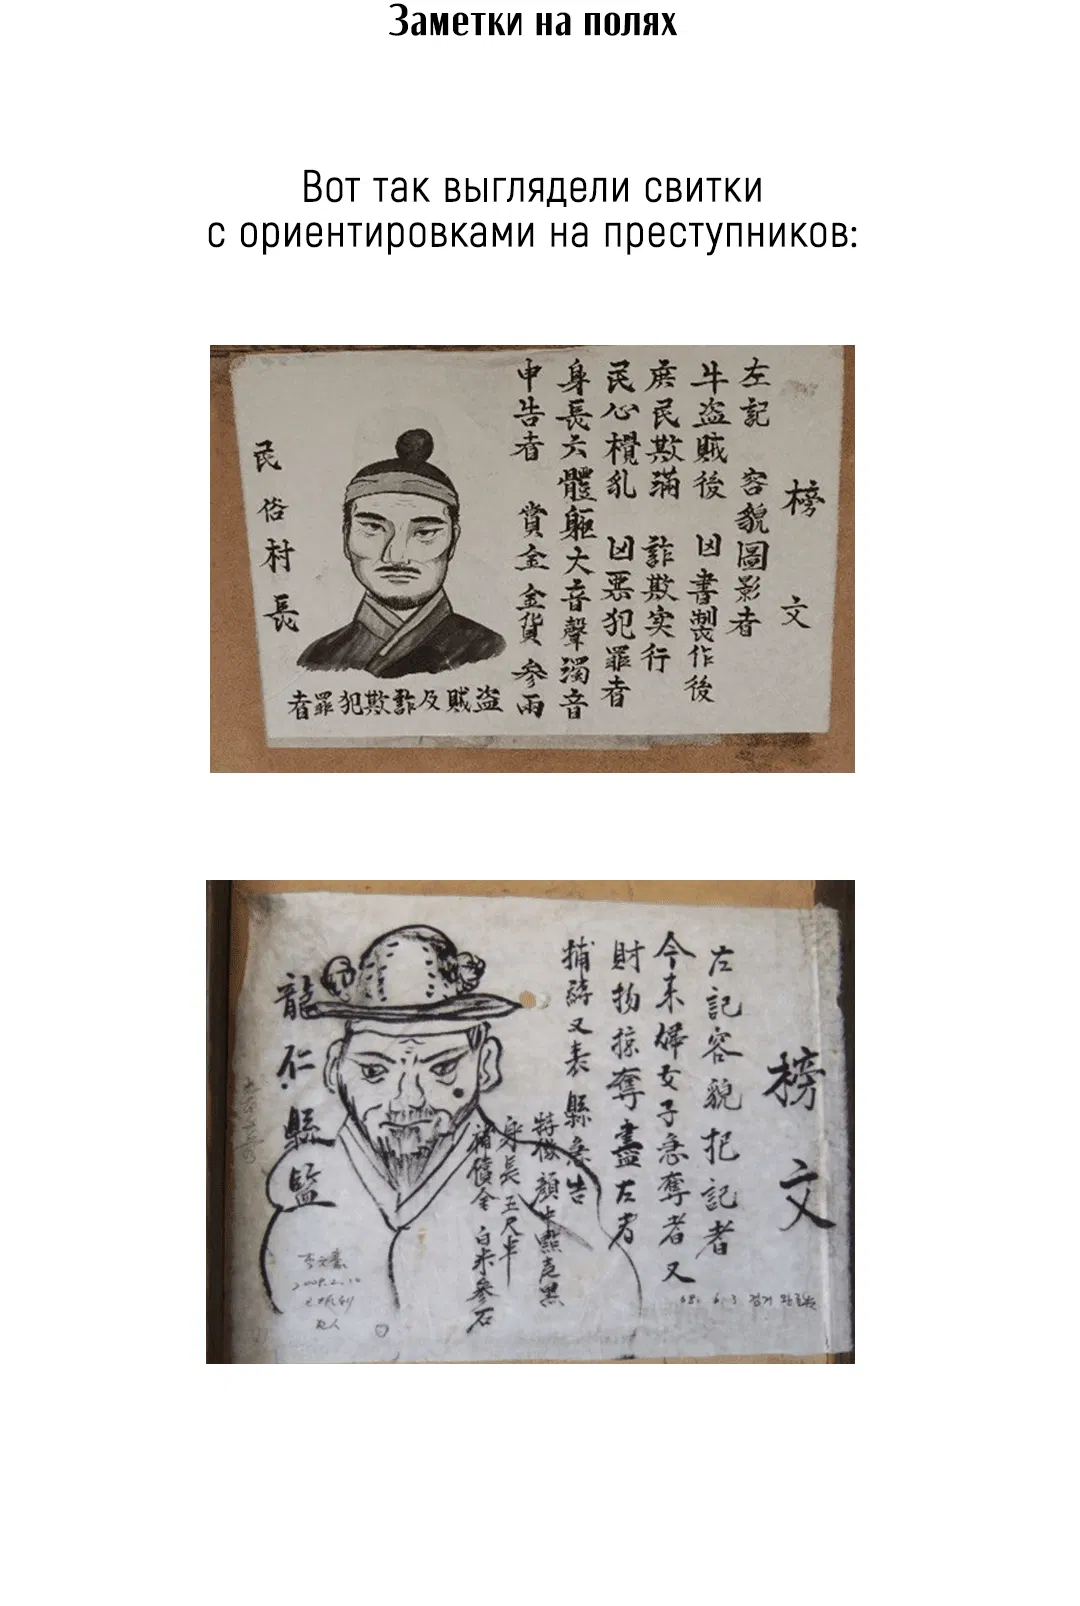 Заметки на полях
Вот так выглядели свитки
с ориентировками на преступников:
榜文
左記 容貌圖影者
牛盗賊後 凶書製作後
庶民欺滿 詐欺实行
民心攪乱 凶悪犯罪者
身長六 體軀大 音聲濁音
申告者 賞金 金貨 參両
民俗村長
盗賊及詐欺犯罪者
榜文
左記容貌把記者
今未婦女子急奪者又
財物掠奪盡左者
又表縣急告
身長五尺半
白米參石
龍仁縣監